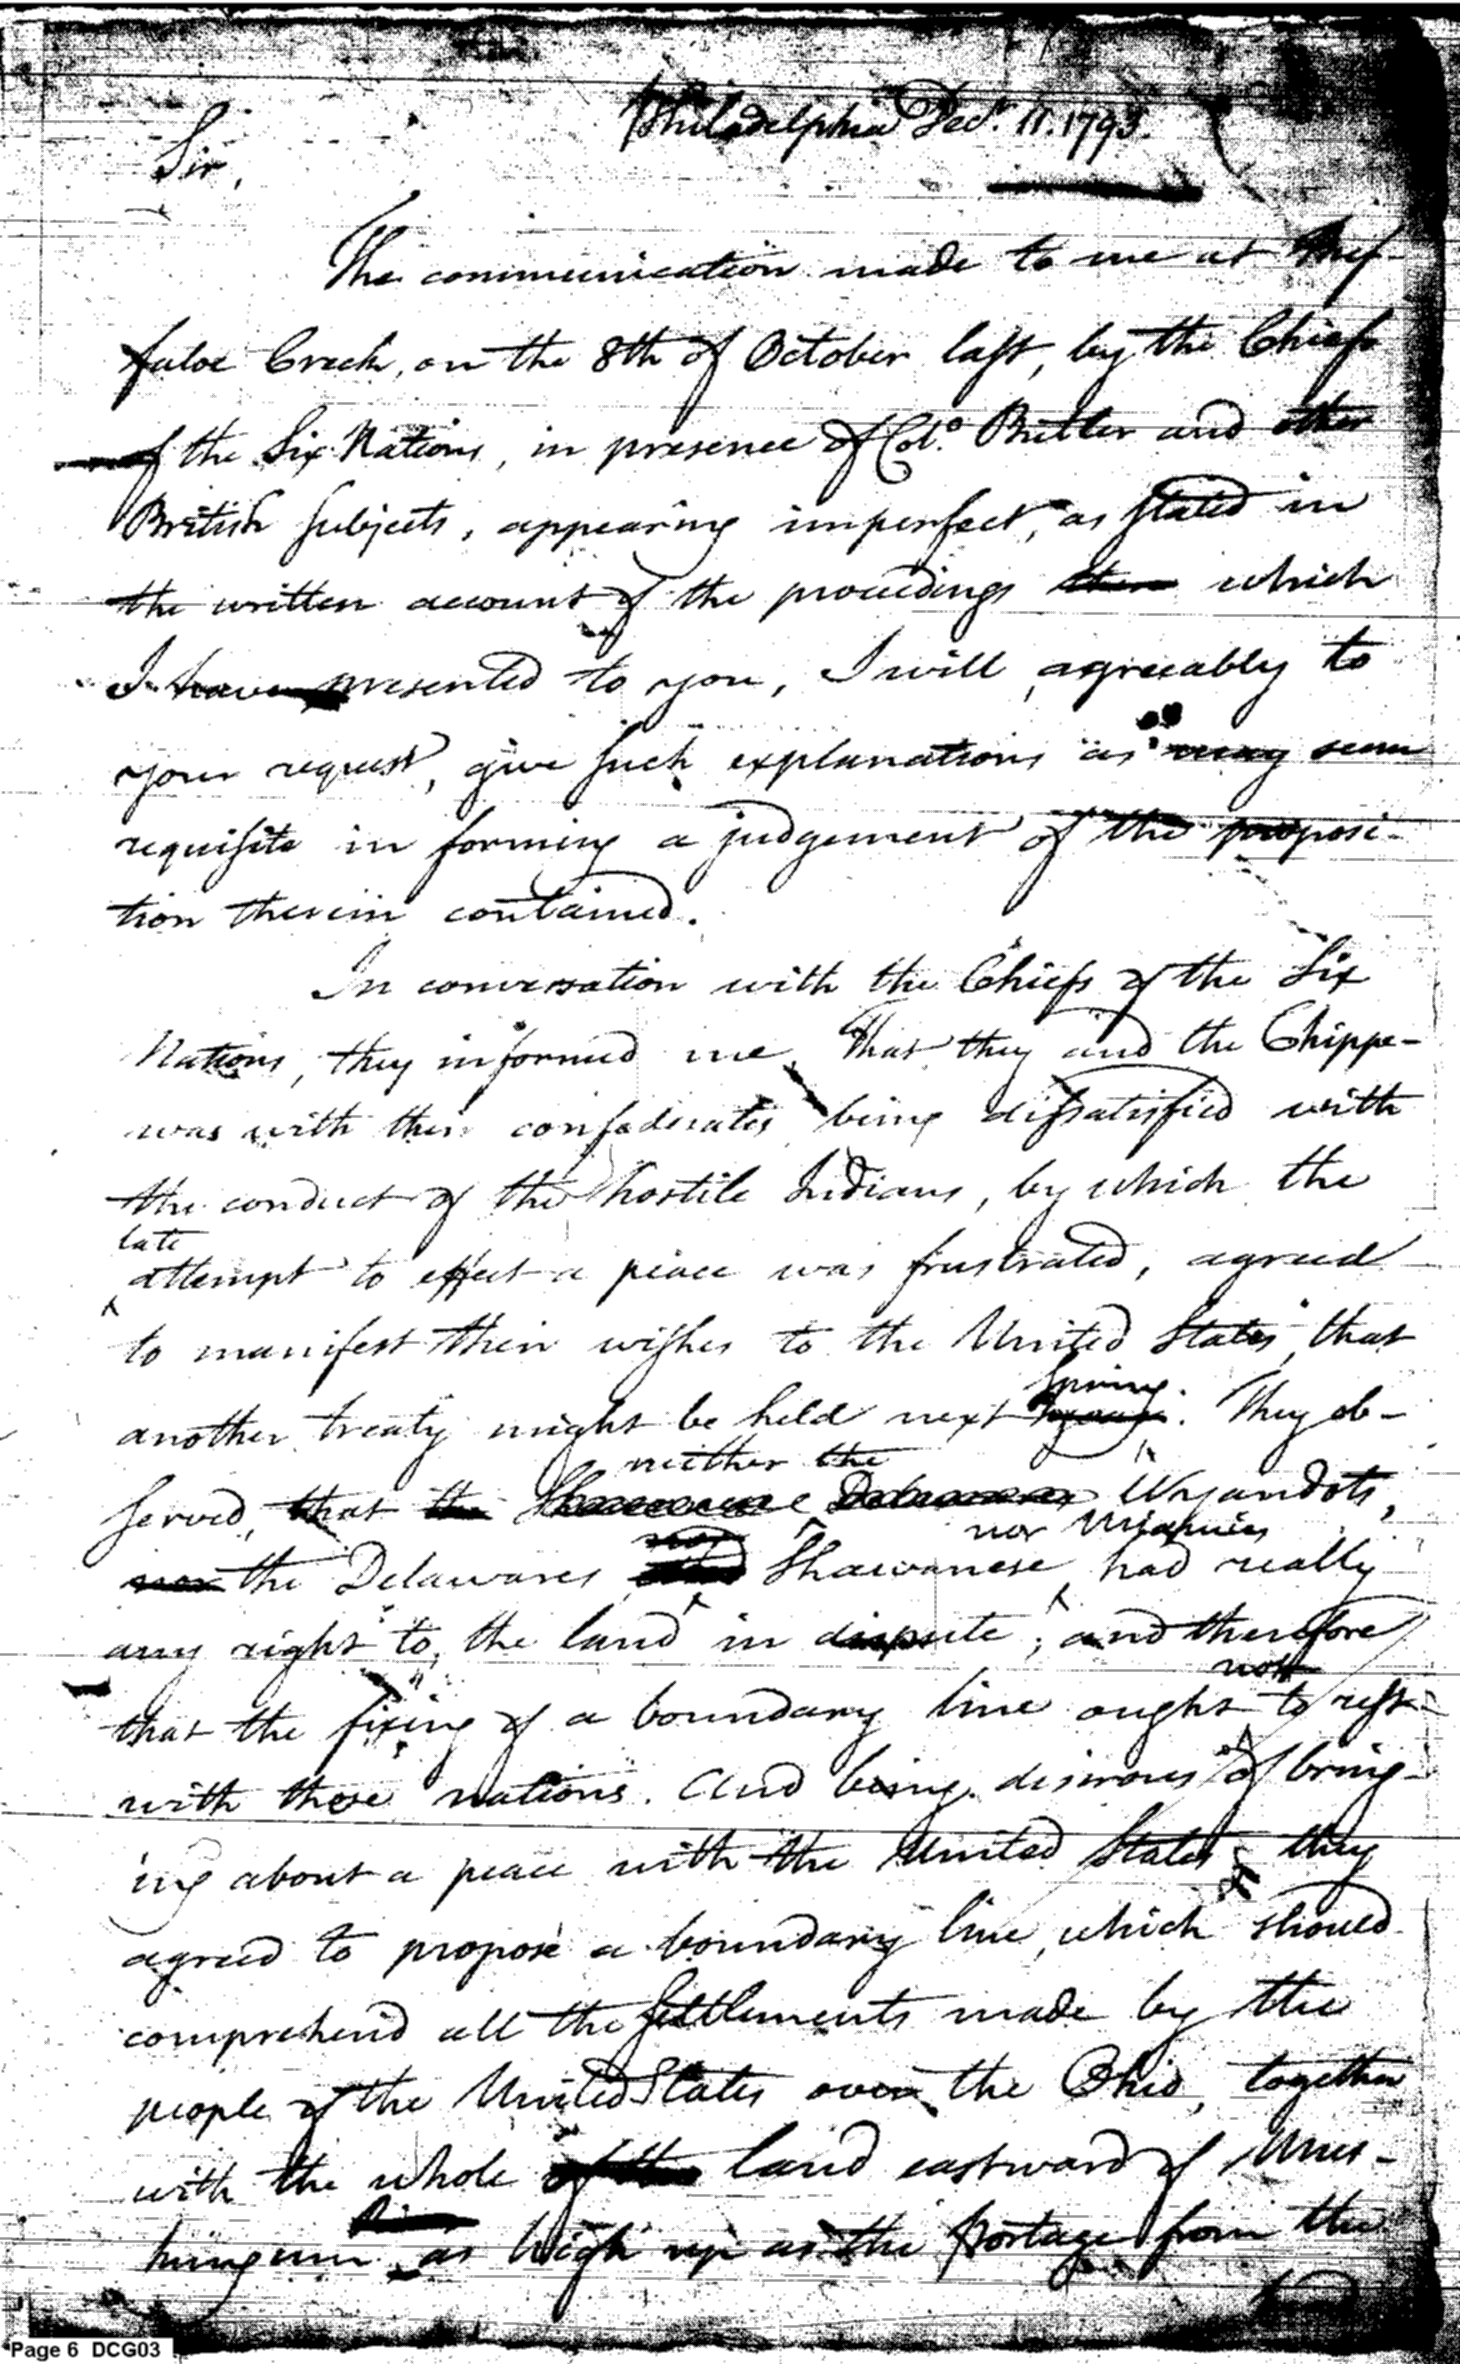 Philadelphia Decr. 11. 1793.
Sir,
The communication made to me at Buf-
faloe Creek, on the 8th of October last, by the Chiefs
of the Six Nations, in presence of Colo. Butler and other
British subjects, appearing imperfect, as stated in
the written account of the proceedings which
I have presented to you, I will, agreeably to
your request, give such explanations as may seem
requisite in forming a judgement of the proposi-
tion therein contained.
In conversation with the Chiefs of the Six
Nations, they informed me, That they and the Chippe-
was with their confederates, being dissatisfied with
the conduct of the hostile Indians, by which the
late
attempt to effect a peace was frustrated, agreed
to manifest their wishes to the United States, that
Spring
another treaty might be held next . They ob-
neither the
served, that the Shawanese Delawares Wyandots,
nor nor Miamies
nor the Delawares Shawanese had really
any right to the land in dispute; and therefore
not
that the fixing of a boundary line ought to rest
with those nations. And being desirous of bring-
ing about a peace with the United States, they
agreed to propose a boundary line, which should
comprehend all the settlements made by the
people of the United States over the Ohio, together
with the whole of the land eastward of Mus-
kingum as high up as the portage from the
Page 6 DCG03